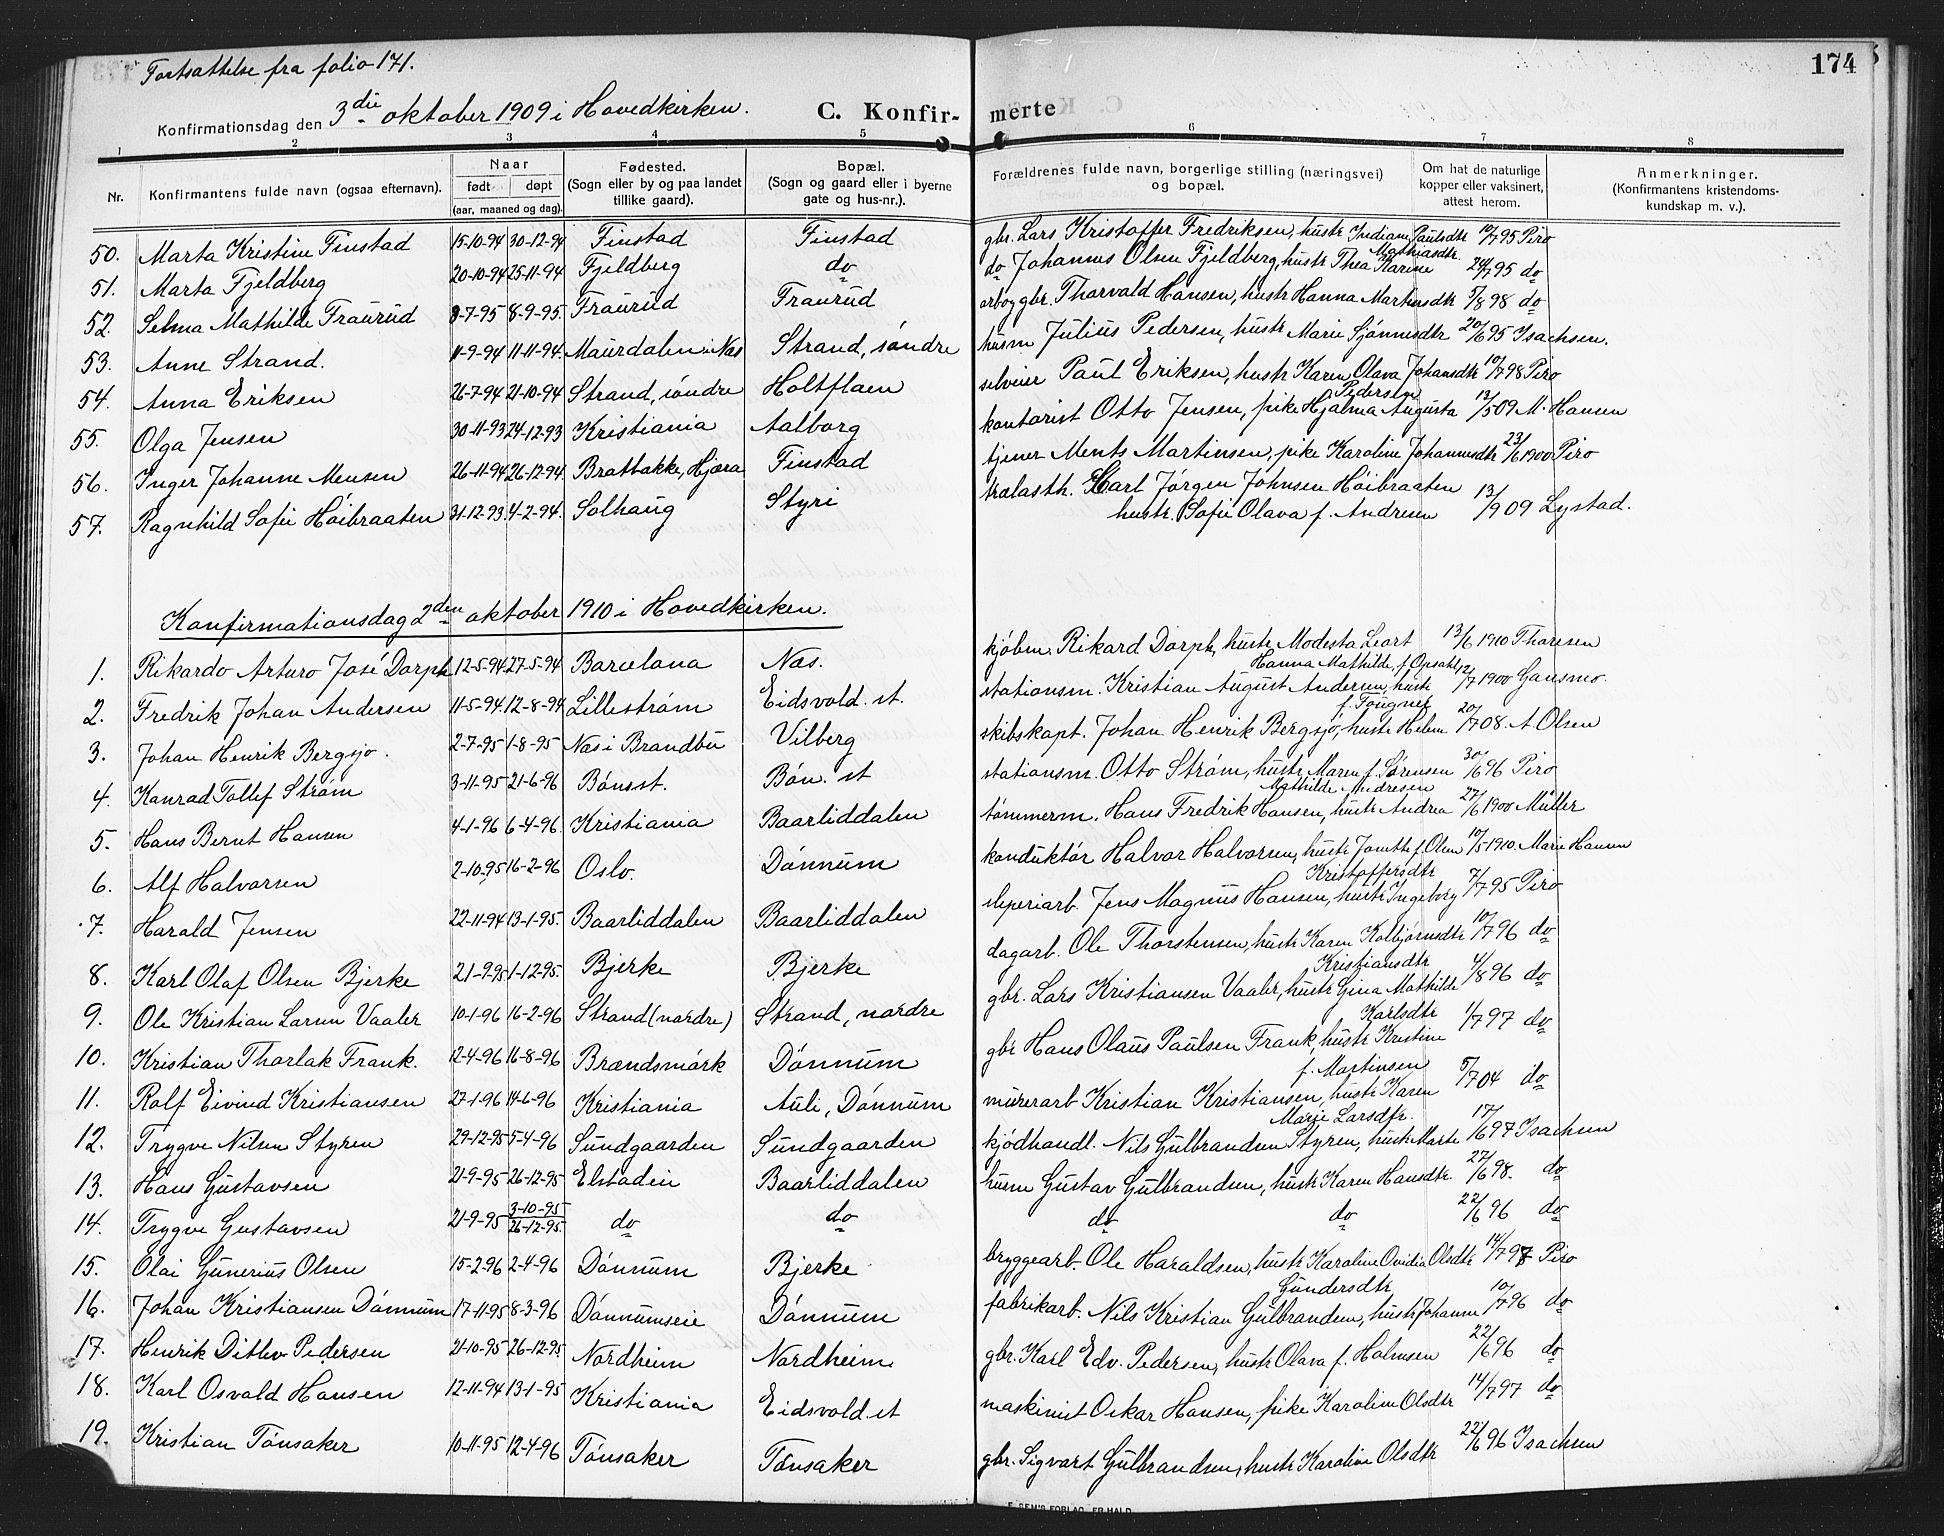 174
Fortsættelse fra folio 171.
Konfirmationsdag den 3die oktober 1909 i Hovedkirken. C. Konfir- merte
1 2 3 4 5 6 7 8
Nr. Konfirmantens fulde navn (ogsaa efternavn). Naar født døpt (aar, maaned og dag). Fødested. (Sogn eller by og paa landet tillike gaard). Bopæl. (Sogn og gaard eller i byerne gate og hus-nr.). Forældrenes fulde navn, borgerlige stilling (næringsvei) og bopæl. Om hat de naturlige kopper eller vaksinert, attest herom. Anmerkninger. (Konfirmantens kristendoms- kundskap m. v.).
50. Marta Kristine Finstad 15-10-94 30-12-94 Finstad Finstad gbr. Lars Kristoffer Fredriksen, hustr Indiane Paulsdtr 12/7 95 Piro
51. Marta Fjeldberg 20-10-94 25-11-94 Fjeldberg do do Johannes Olsen Fjeldberg, hustr Thea Karine Mathiasdtr. 24/7 95 do
52. Selma Mathilde Traurud 8-7-95 8-9-95 Traurud Traurud arb og gbr. Thorvald Hansen, hustr Hanna Martinsdtr 5/8 98 do
53. Anne Strand. 11-9-94 11-11-94. Maurdalen i Nes Strand, søndre husm Julius Pedersen, hustr Marie Sjønnesdtr 20/6 95 Isachsen.
54. Anna Eriksen 26-7-94 21-10-94 Strand, søndre Holtflaen selveier Paul Eriksen, hustr Karen Olava Johansdtr 10/7 98 Piro
55. Olga Jensen 30-11-93 24-12-93 Kristiania Aalborg kontorist Otto Jensen, pike Hjalma Augusta Pedersen 12/5 09 M. Hansen
56. Inger Johanne Mensen 26-11-94 26-12-94. Bratbakke, Hjæra Finstad tjener Ments Martinsen, pike Karoline Johannesdtr 23/6 1900 Piro
57. Ragnhild Sofie Høibraaten 31-12-93. 4-2-94. Solhaug Styri trælasth. Karl Jørgen Johnsen Høibraaten
hustr. Sofie Olava f. Andresen 13/9 09 Lystad.
Konfirmationsdag 2den oktober 1910 i Hovedkirken.
1. Rikardo Arturo José Dorph 12-5-94 27-5-94 Barcelona Næs. kjøbm. Rikard Dorph, hustr Modesta Leort 13/6 1910 Thoresen
2. Fredrik Johan Andersen 11-5-94. 12-8-94 Lillestrøm Eidsvold. st. stationsm. Kristian August Andersen, hustr Hanna Mathilde, f. Opsahl 12/7 1900 Gansmo.
3. Johan Henrik Bergsjø. 2-7-95 1-8-95 Næs i Brandbu Vilberg skibskapt. Johan Henrik Bergsjø, hustr Helene f. Fougner 20/7 08. A Olsen
4. Konrad Tollef Strøm 3-11-95 21-6-96 Bønsst. Bøn. st stationsm. Otto Strøm, hustr Maren f. Sørensen 30/6 96 Piro
5. Hans Bernt Hansen 4-1-96 6-4-96. Kristiania Baarliddalen tømmerm. Hans Fredrik Hansen, hustr Andrea Mathilde Andresen 27/6 1900 Müller
6. Alf Halvorsen 2-10-95 16-2-96 Oslo. Dønnum konduktør Halvor Halvorsen, hustr Josette f. Olsen 10/5 1910. Marie Hansen
7. Harald Jensen 22-11-94 13-1-95. Baarliddalen Baarliddalen sleperiarb. Jens Magnus Hansen, hustr Ingeborg Kristoffersdtr 7/7 95 Piro
8. Karl Olaf Olsen Bjerke 21-9-95 1-12-95. Bjerke Bjerke dagarb. Ole Thorstensen, hustr Karen Kolbjørnsdtr 10/7 96 do
9. Ole Kristian Larsen Vaaler 10-1-96 16-2-96 Strand (nordre) Strand, nordre gbr. Lars Kristiansen Vaaler, hustr Gina Mathilde Kristiansdtr 4/8 96 do
10. Kristian Thorlak Frank. 12-4-96 16-8-96 Brændsmørk Dønnum gbr Hans Olaus Paulsen Frank, hustr Kristine Karlsdtr 1/7 97 do
11. Rolf Eivind Kristiansen 27-1-96 14-6-96 Kristiania Auli, Dønnum murerarb Kristian Kristiansen, hustr Karen f. Martinsen 5/7 04 do
12. Trygve Nilsen Styren 29-12-95 5-4-96 Sundgaarden Sundgaarden kjødhandl. Nils Gulbrandsen Styren, hustr Marte Marie Larsdtr. 17/6 97 Isachsen
13. Hans Gustavsen 21-9-95 26-12-95 Elstadeie Baarliddalen husm Gustav Gulbrandsen, hustr Karen Hansdtr. 27/6 98. do
14. Trygve Gustavsen 21-9-95 3-10-95 26-12-95. do do do do 22/6 96 do
15. Olai Gunerius Olsen 15-2-96 2-4-96 Dønnum Bjerke bryggearb. Ole Haraldsen, hustr Karoline Ovidia Olsdtr 14/7 97 Piro
16. Johan Kristiansen Dønnum 17-11-95 8-3-96 Dønnumseie Dønnum fabrikarb. Nils Kristian Gulbrandsen, hustr Johanne Gundersdtr 10/7 96 do
17. Henrik Ditlev Pedersen 21-10-95 26-12-95 Nordheim Nordheim gbr. Karl Edv. Pedersen, hustr Olava f. Holmsen 22/6 96 do
18. Karl Osvald Hansen 12-11-94 13-1-95 Kristiania Eidsvold. st maskinist Oskar Hansen, pike Karoline Olsdtr 14/7 97 do
19. Kristian Tønsaker 10-11-95 12-4-96 Tønsaker Tønsaker gbr. Sigvart Gulbrandsen, hustr Karoline Olsdtr 22/6 96 Isachsen
SEM'S FORLAG, FR.HALD